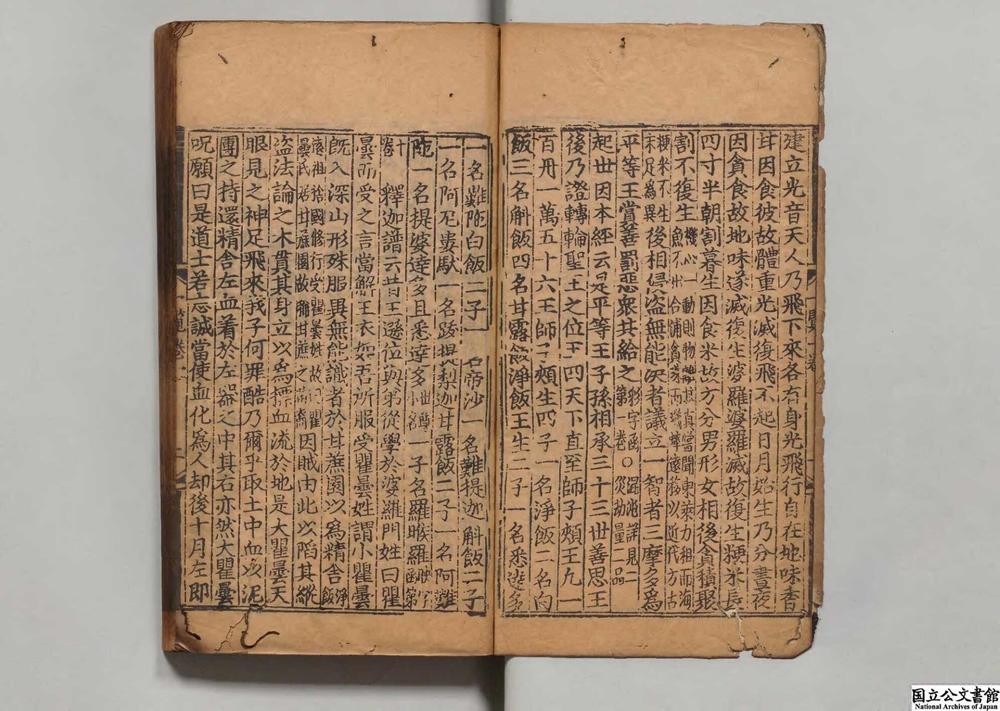 建立光音天人乃飛下來各有身光飛行自在地味香
甘因食彼故體重光滅復飛不起日月始生乃分晝夜
因貪食故地味遂滅復生婆羅婆羅滅故復生粳米長
四寸半朝割暮生因食米故方分男形女相後貪積聚
割不復生
粳米不生
未足為異後相侵盜無能決者議立一智者三摩多為
平等王賞善罰惡衆共給之
第一卷
起世因本經云是平等王子孫相承三十三世善思王
後乃證轉輪聖王之位王四天下直至師子頰王凡一
百卅一萬五十六王師子頰生四子一名淨飯二名白
飯三名斛飯四名甘露飯淨飯王生二子一名悉達多
一名難陁白飯二子一名帝沙一名難提迦斛飯二子
一名阿尼婁馱一名跋提梨迦甘露飯二子一名阿難
陁一名提婆達多且悉達多一子名羅睺羅
釋迦譜云昔王遜位與弟從學於婆羅門姓曰瞿
曇而受之言當解王衣如吾所服受瞿曇姓謂小瞿曇
旣入深山形殊服異無能識者於甘蔗園以爲精舍
因賊由此以陷其縱
盜法論之木貫其身立以爲摽血流於地是大瞿曇天
眼見之神足飛來我子何罪酷乃爾乎取土中血以泥
團之持還精舍左血着於左器之中其右亦然大瞿曇
呪願曰是道士若志誠當使血化爲人却後十月左即
国立公文書館
National Archives of Japan